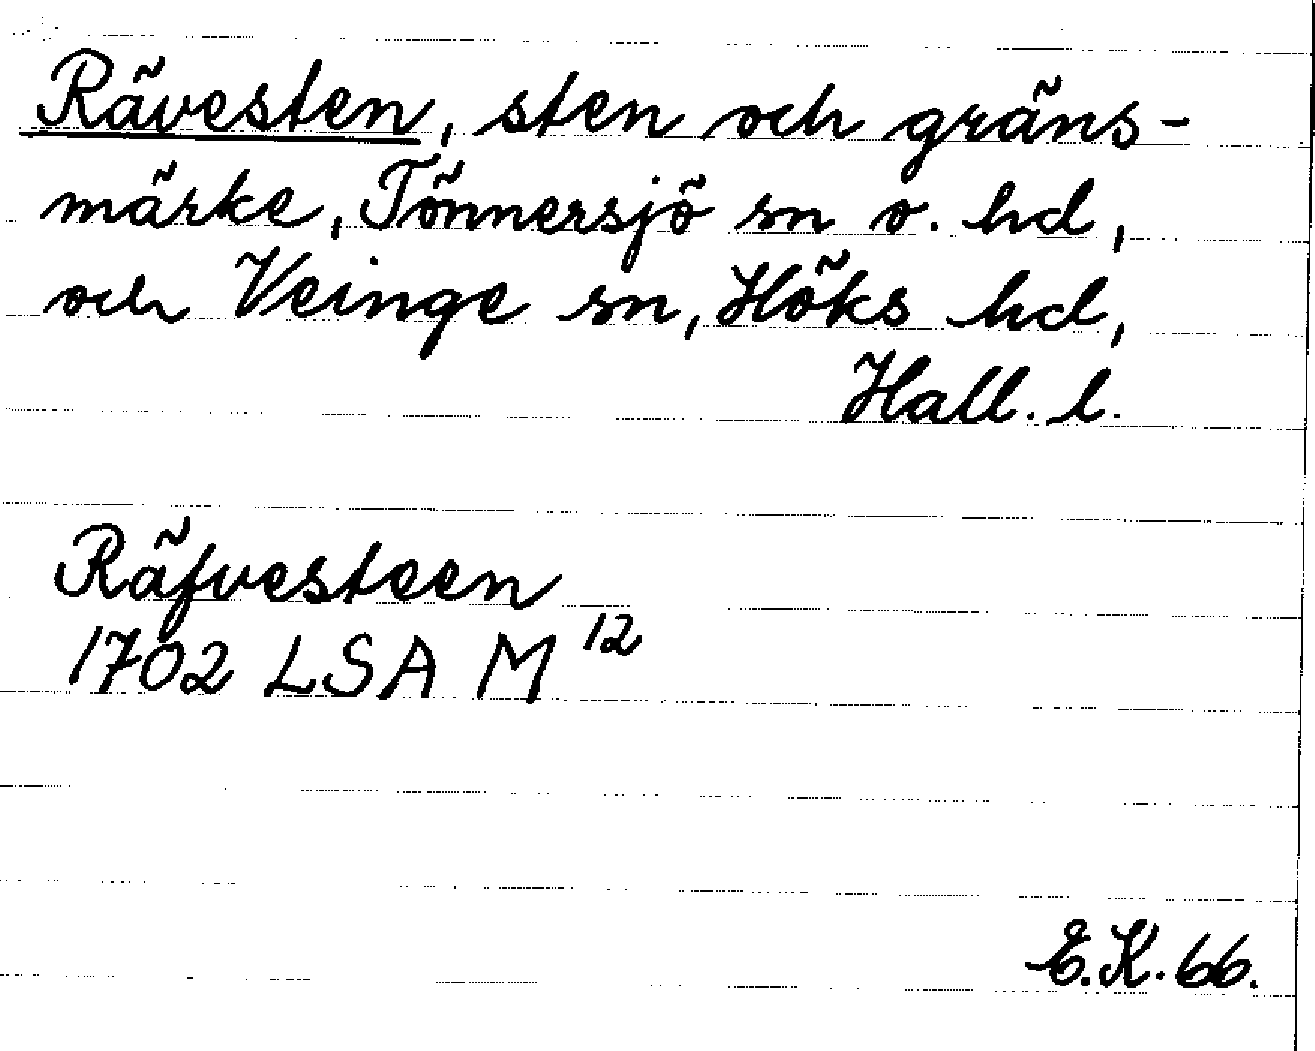 Rävesten, sten och gräns-
märke, Tönnersjö sn o. hd,
och Veinge sn, Höks hd,
Hall. l.
Räfvesteen
1702 LSA M 12
E.K. 66.